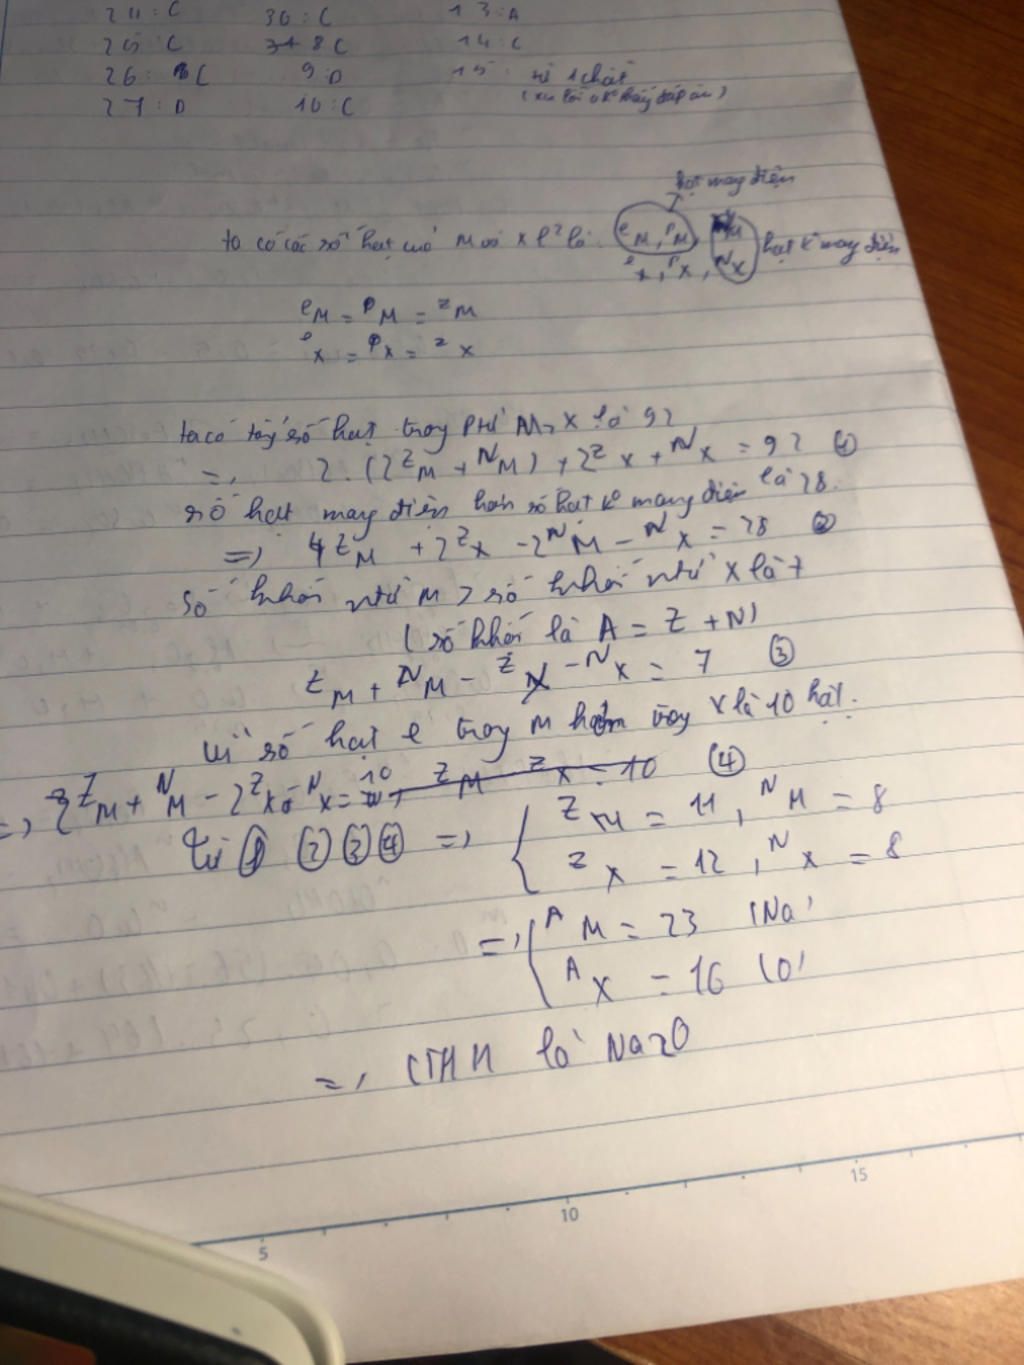 24: C 30: C 13: A
25: C 8C 14: C
26: C 9: D 15: 1 chất
27: D 10: C
hạt mang điện
ta có các số hạt của M và X l² là: eM, pM, NM
eX, pX, NX hạt k° mang điện
eM = pM = zM
eX = pX = zX
ta có tổng số hạt trong ptử M2X là 92
=> 2.(2ZM + NM) + 2ZX + NX = 92 (1)
số hạt mang điện hơn số hạt k° mang điện là 28.
=> 4ZM + 2ZX - 2NM - NX = 28 (2)
số khối ntử M > số khối ntử X là 7
(số khối là A = Z + N)
ZM + NM - ZX - NX = 7 (3)
số hạt e trong M hơn trong X là 10 hạt.
=> 2ZM + NM - 2ZX - NX = 10 (4)
Từ (1) (2) (3) (4) => { ZM = 11, NM = 8
ZX = 12, NX = 8
=> { AM = 23 (Na)
AX = 16 (O)
=> CTHH là Na2O
5 10 15